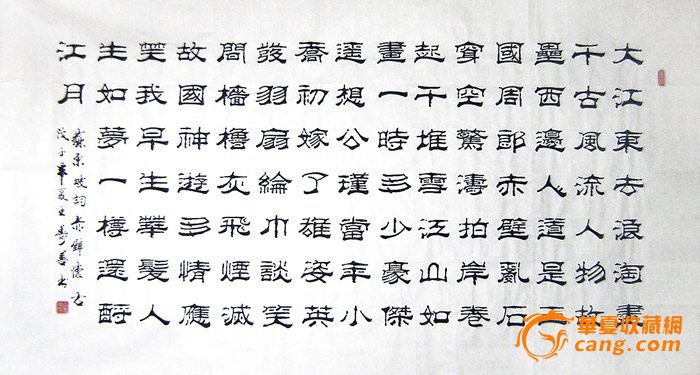 大江東去浪淘盡
千古風流人物故
壘西邊人道是三
國周郎赤壁亂石
穿空驚濤拍岸卷
起千堆雪江山如
畫一時多少豪傑
遥想公瑾當年小
喬初嫁了雄姿英
發羽扇綸巾談笑
間檣櫓灰飛煙滅
故國神遊多情應
笑我早生華髮人
生如夢一樽還酹
江月
蘇東坡詞赤壁懷古
子年夏
華夏收藏網
cang.com